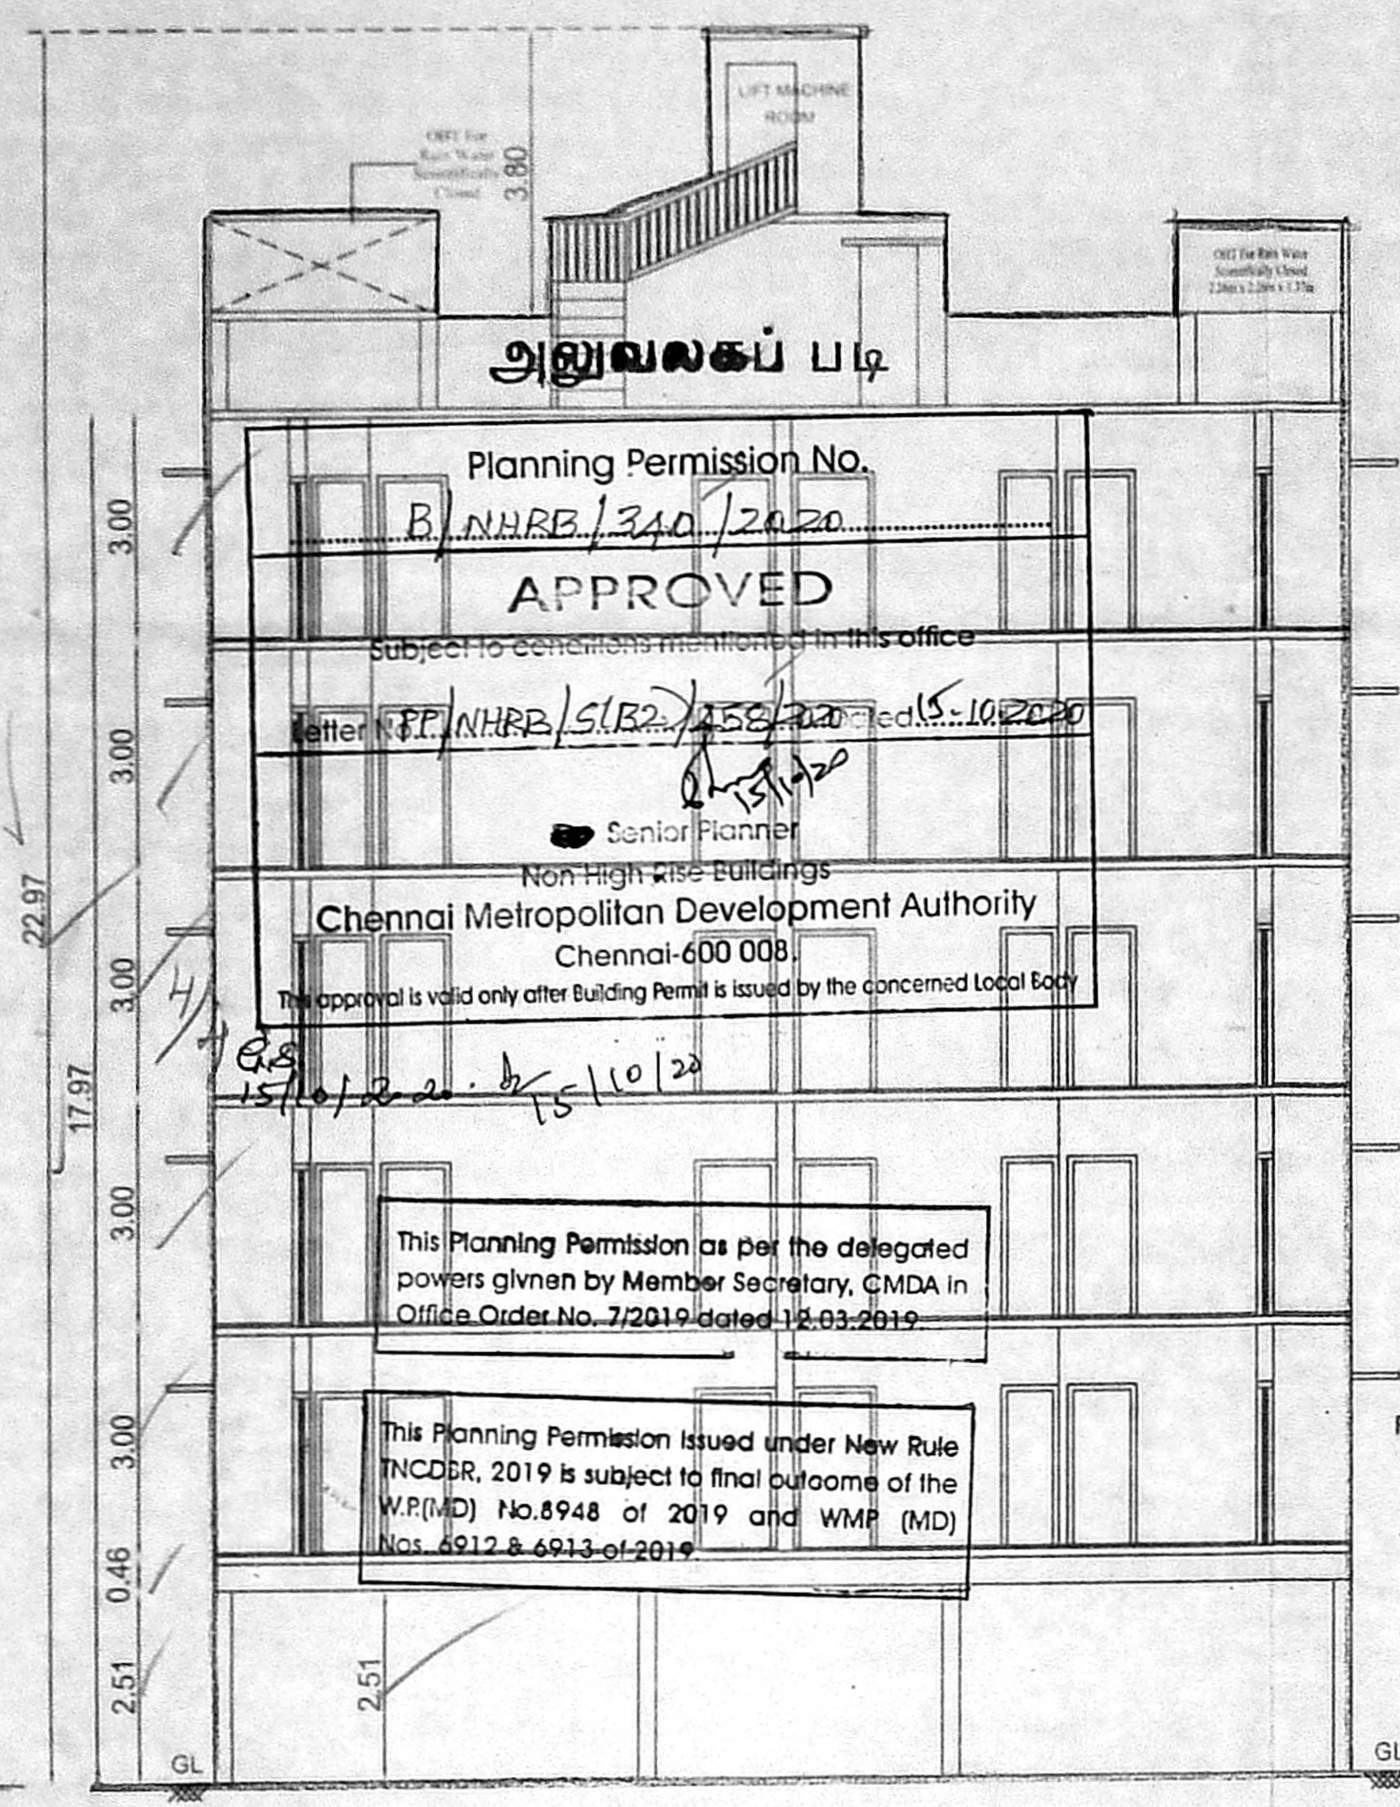 LIFT MACHINE
ROOM
OHT For
Rain Water
Scientifically
Closed
3.80
OHT For Rain Water
Scientifically Closed
அலுவலகப் படி
Planning Permission No.
B/NHRB/340/2020
APPROVED
Subject to conditions mentioned in this office
Letter No. PP/NHRB/S(B2)/258/2020 dated 15-10-2020
15/10/20
Senior Planner
Non High Rise Buildings
Chennai Metropolitan Development Authority
Chennai-600 008.
This approval is valid only after Building Permit is issued by the concerned Local Body
15/10/2020.
15/10/20
This Planning Permission as per the delegated
powers givnen by Member Secretary, CMDA in
Office Order No. 7/2019 dated 12.03.2019.
This Planning Permission issued under New Rule
TNCDBR, 2019 is subject to final outcome of the
W.P.(MD) No.8948 of 2019 and WMP (MD)
Nos. 6912 & 6913 of 2019.
22.97
17.97
3.00
3.00
3.00
3.00
3.00
0.46
2.51
2.51
GL
GL